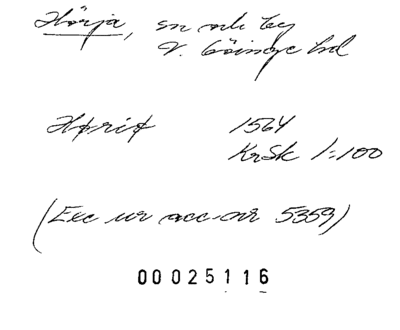 Hörja, sn och by
V. Göinge hd
Høriø 1564
KrSk 1:100
(Exc ur acc-nr 5359)
00025116